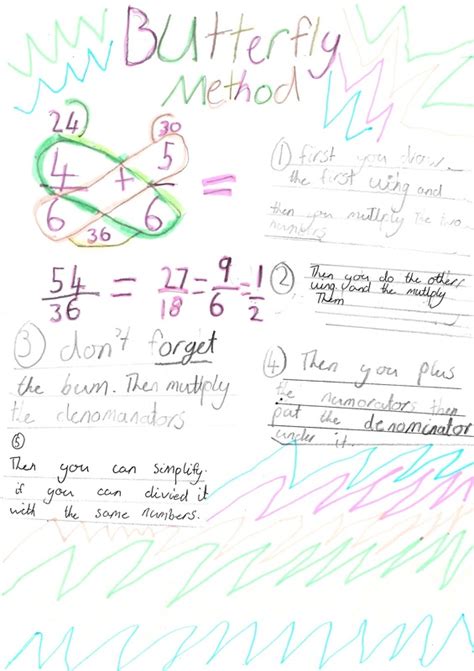 Butterfly
Method
24 30
4 + 5 =
6 6
36
54 = 27 = 9 = 1
36 18 6 2
① first you draw
the first wing and
then you multiply the two
numbers
② Then you do the other
wing and the mutiply
Them
③ don't forget
the bum. Then multiply
the denomanators
④ Then you plus
the numorators then
put the denominator
under it.
⑤
Then you can simplify.
if you can divied it
with the same numbers.